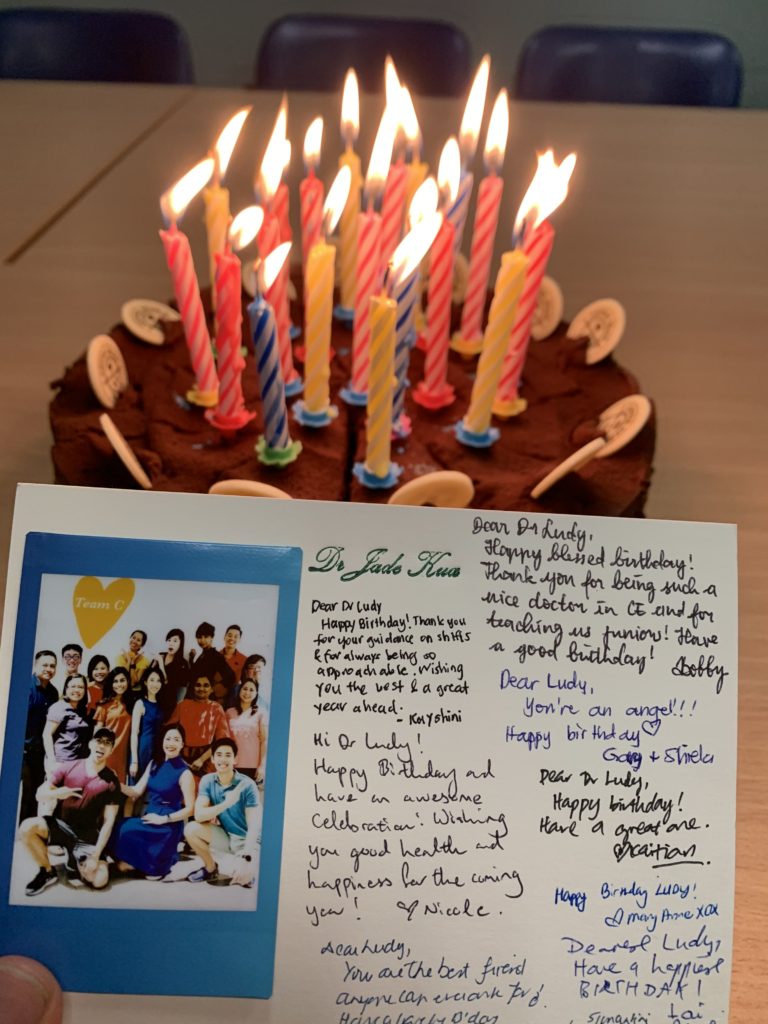 Team C
Dr Jade Kua
Dear Dr Ludy
Happy Birthday! Thank you
for your guidance on shifts
& for always being so
approachable. Wishing
you the best & a great
year ahead.
- Kayshini
Hi Dr Ludy!
Happy Birthday and
have an awesome
Celebration! Wishing
you good health and
happiness for the coming
year! ♡ Nicole.
Dear Ludy,
You are the best friend
anyone can ever ask for!
Dear Dr Ludy,
Happy blessed birthday!
Thank you for being such a
nice doctor in CE and for
teaching us juniors! Have
a good birthday!
Dear Ludy,
You're an angel!!!
Happy birthday ♡
Gary + Shiela
Dear Dr Ludy,
Happy birthday!
Have a great one.
Happy Birthday LUDY!
♡ Mary Anne XOX
Dearest Ludy,
Have a happiest
BIRTHDAY!
Lai